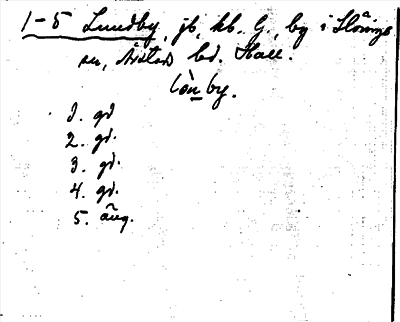 1-5 Lundby, jb, kb. G., by i Slöinge
sn, Årstad hd. Hall.
lòn by.
1. gd
2. gd.
3. gd.
4. gd.
5. äug.